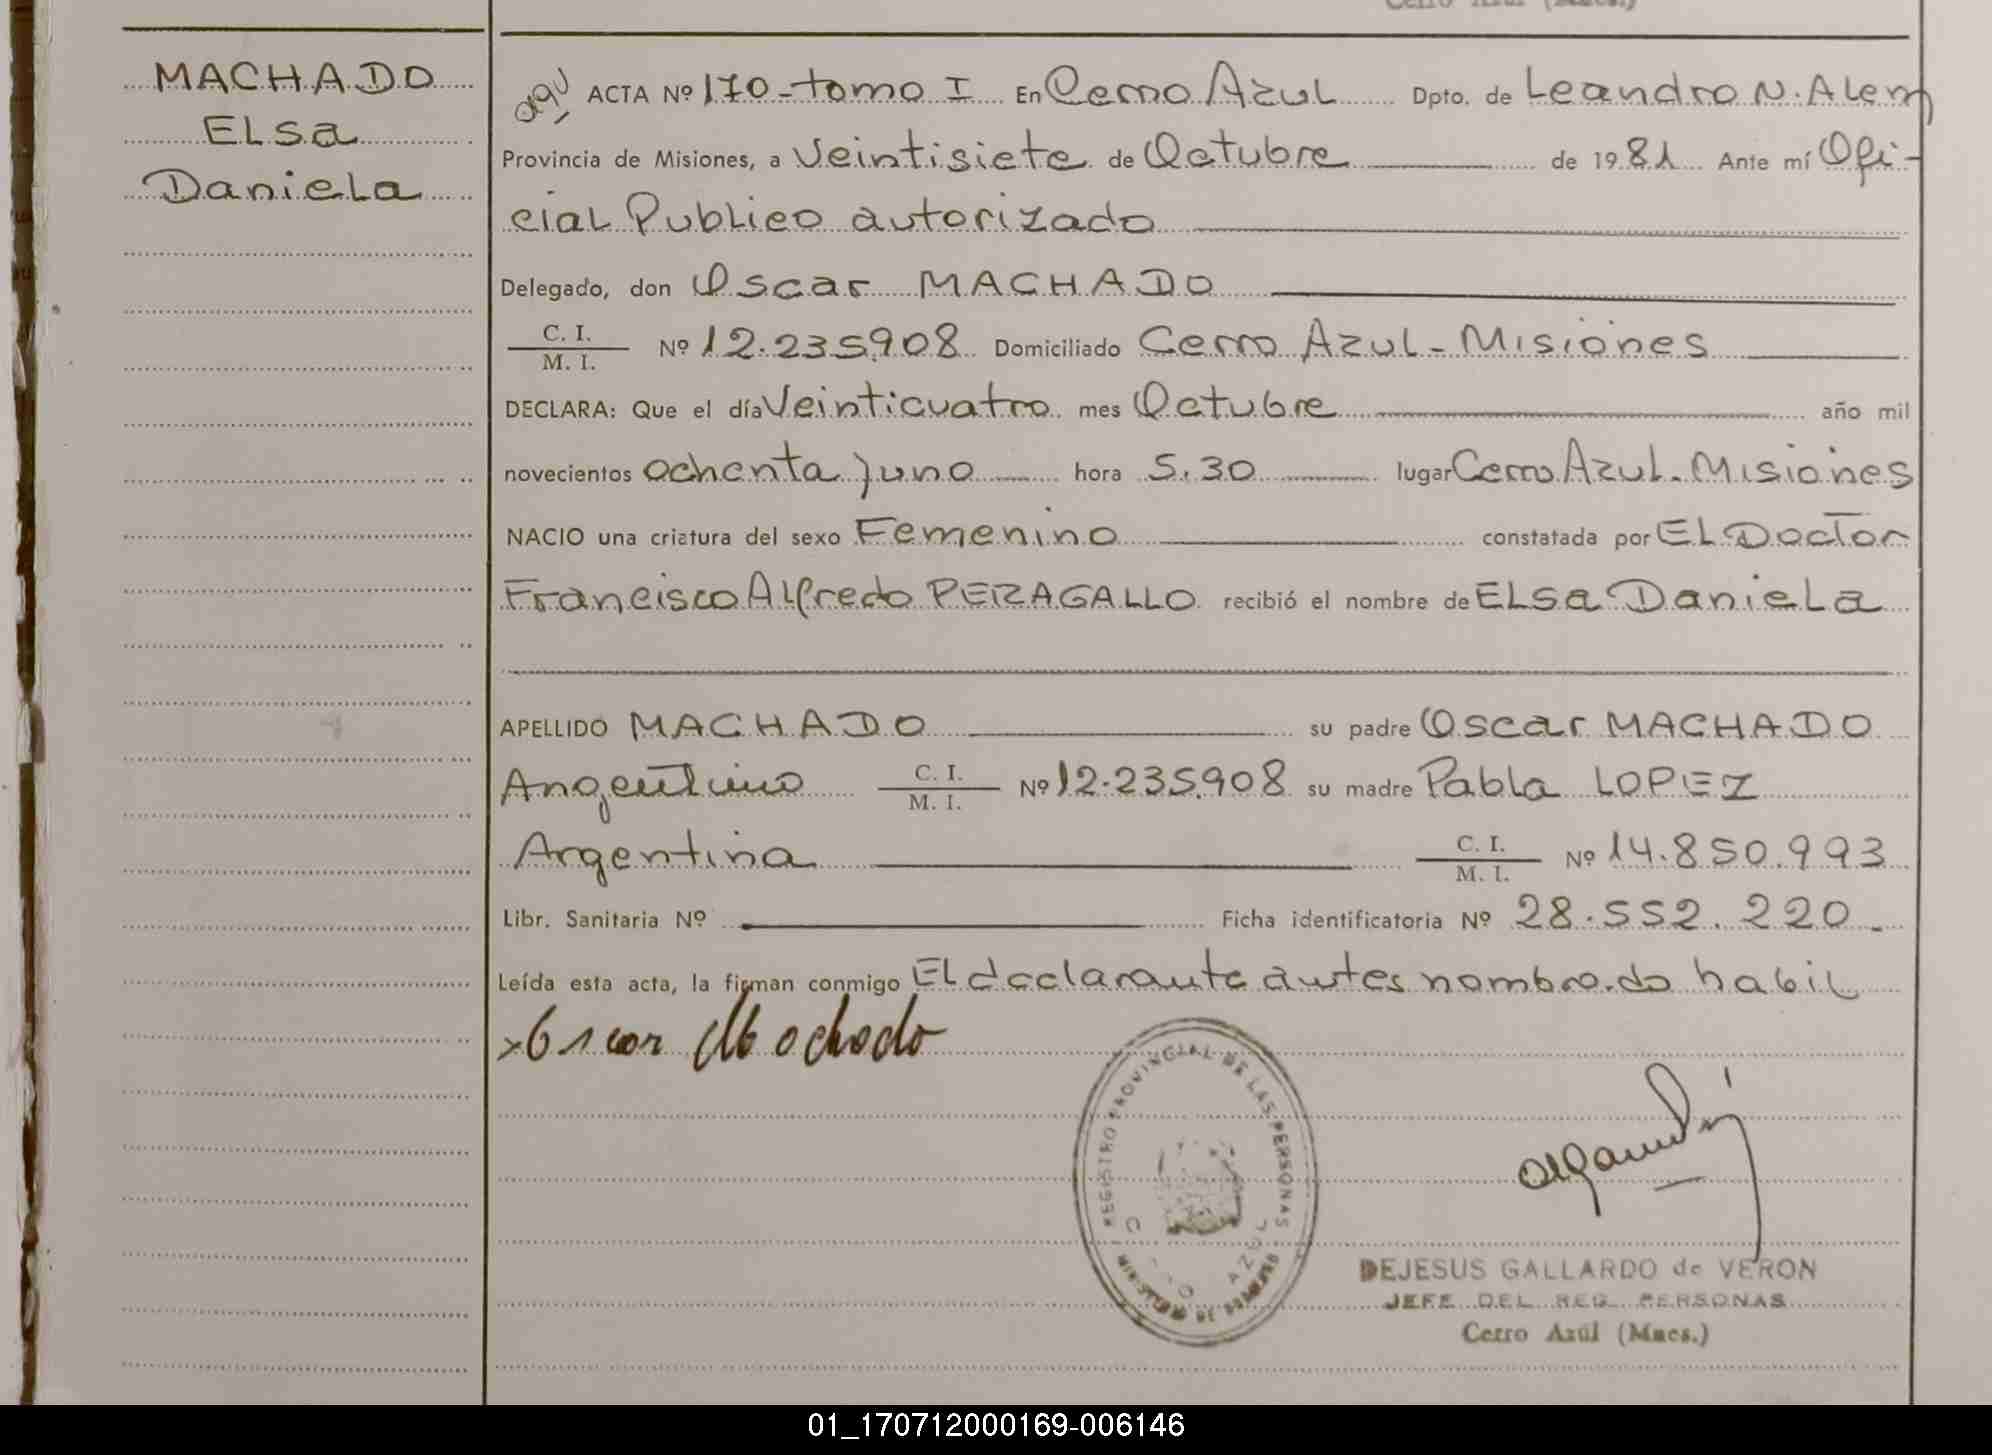 Cerro Azul (Mnes.)
MACHADO
ELSa
DanieLa
ACTA Nº 170-tomo I En Cerro AzuL Dpto. de Leandro N. ALem
Provincia de Misiones, a Veintisiete de Octubre de 1981 Ante mí Ofi-
ciaL PubLico autorizado
Delegado, don Oscar MACHADO
C. I.
M. I.
Nº 12.235.908 Domiciliado Cerro AzuL-Misiones
DECLARA: Que el día Veinticuatro mes Octubre año mil
novecientos ochenta y uno hora 5.30 lugar Cerro AzuL-Misiones
NACIO una criatura del sexo Femenino constatada por EL Doctor
Francisco ALfredo PERAGALLO recibió el nombre de ELSa DanieLa
APELLIDO MACHADO su padre Oscar MACHADO
Argentino C. I.
M. I.
Nº 12.235.908 su madre PabLa LOPEZ
Argentina C. I.
M. I.
Nº 14.850.993
Libr. Sanitaria Nº Ficha identificatoria Nº 28.552.220
Leída esta acta, la firman conmigo EL declarante antes nombrado habiL
Oscar Machado
REGISTRO PROVINCIAL DE LAS PERSONAS
AZUL
DEJESUS GALLARDO de VERON
JEFE DEL REG. PERSONAS
Cerro Azúl (Mnes.)
01_170712000169-006146